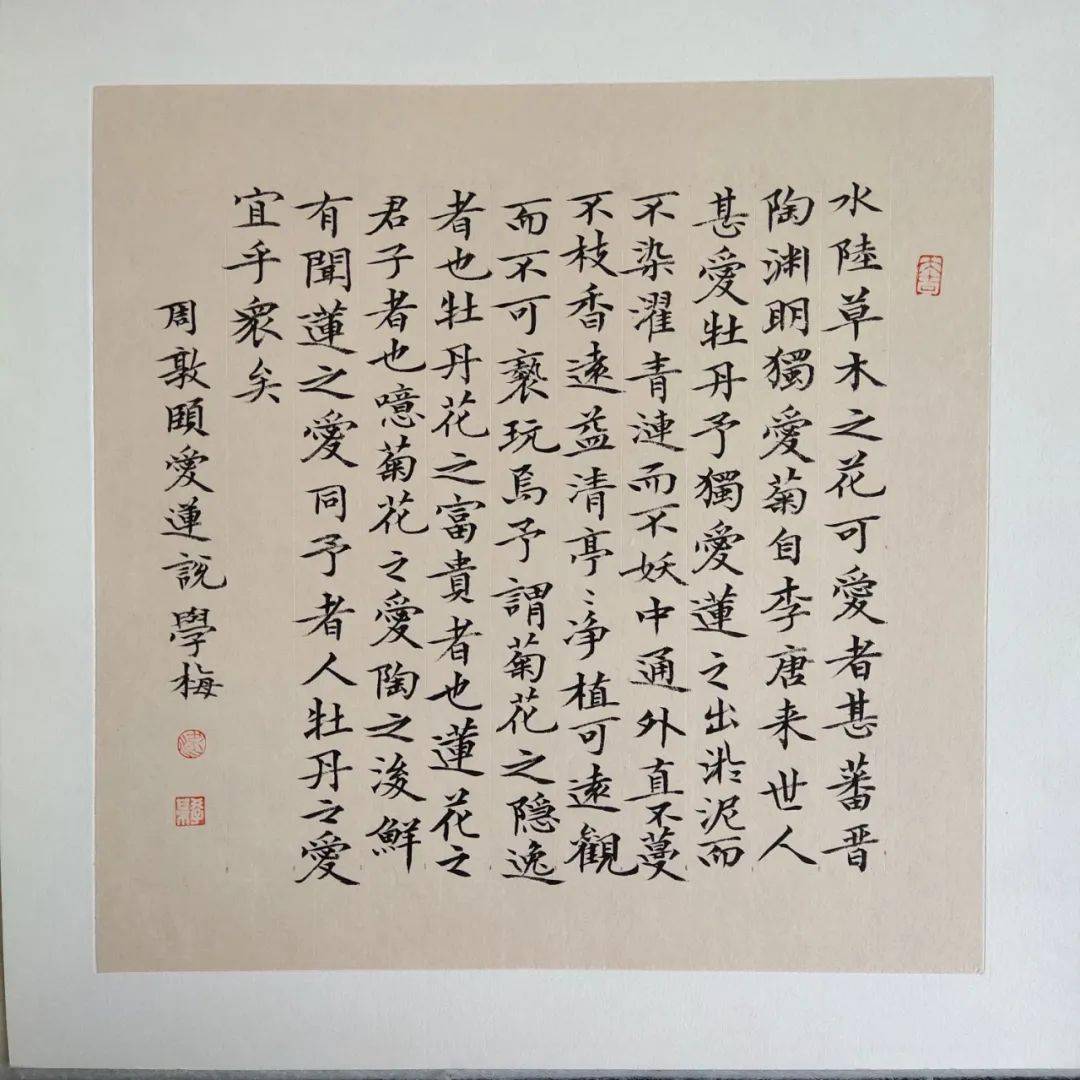 水陸草木之花可愛者甚蕃晋
陶渊明獨愛菊自李唐来世人
甚愛牡丹予獨愛蓮之出淤泥而
不染濯青漣而不妖中通外直不蔓
不枝香遠益清亭〻浄植可遠觀
而不可褻玩焉予謂菊花之隐逸
者也牡丹花之富貴者也蓮花之
君子者也噫菊花之愛陶之後鮮
有聞蓮之愛同予者人牡丹之愛
宜乎衆矣
周敦頤愛蓮說學梅